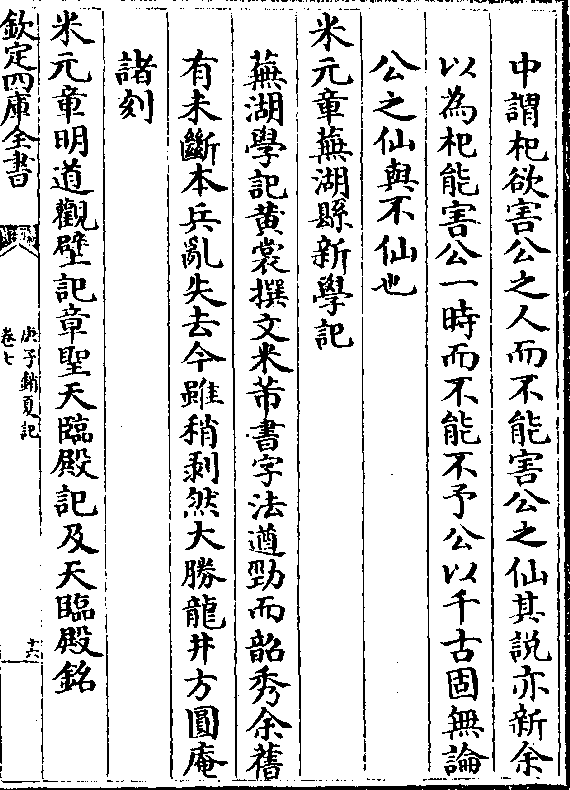 中謂杞欲害公之人而不能害公之仙其説亦新余
以為杞能害公一時而不能不予公以千古固無論
公之仙與不仙也
米元章蕪湖縣新學記
蕪湖學記黄裳撰文米芾書字法遒勁而韶秀余舊
有未斷本兵亂失去今雖稍剥然大勝龍井方圓庵
諸刻
米元章明道觀壁記章聖天臨殿記及天臨殿銘
欽定四庫全書
庚子銷夏記
卷七
十六